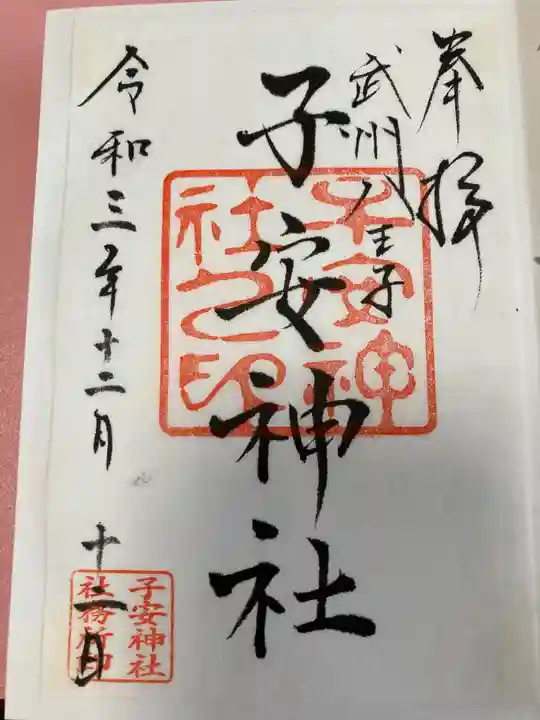 奉拝
武州八王子
子安神社
子安神社之印
令和三年十二月十二日
子安神社
社務所印